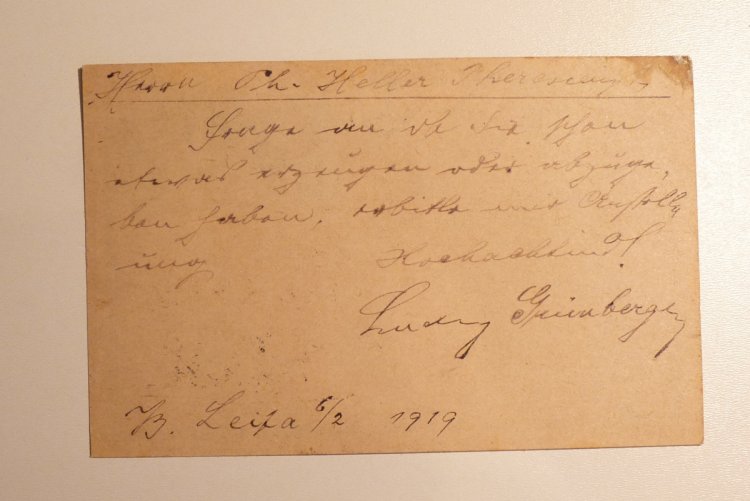 Herrn Ph. Heller Theresien
Frage an ob Sie schon
etwas erzeugen oder abzuge-
ben haben. erbitte mir Anstell-
ung Hochachtend!
Ludwig Grünberger
B. Leipa 6/2 1919